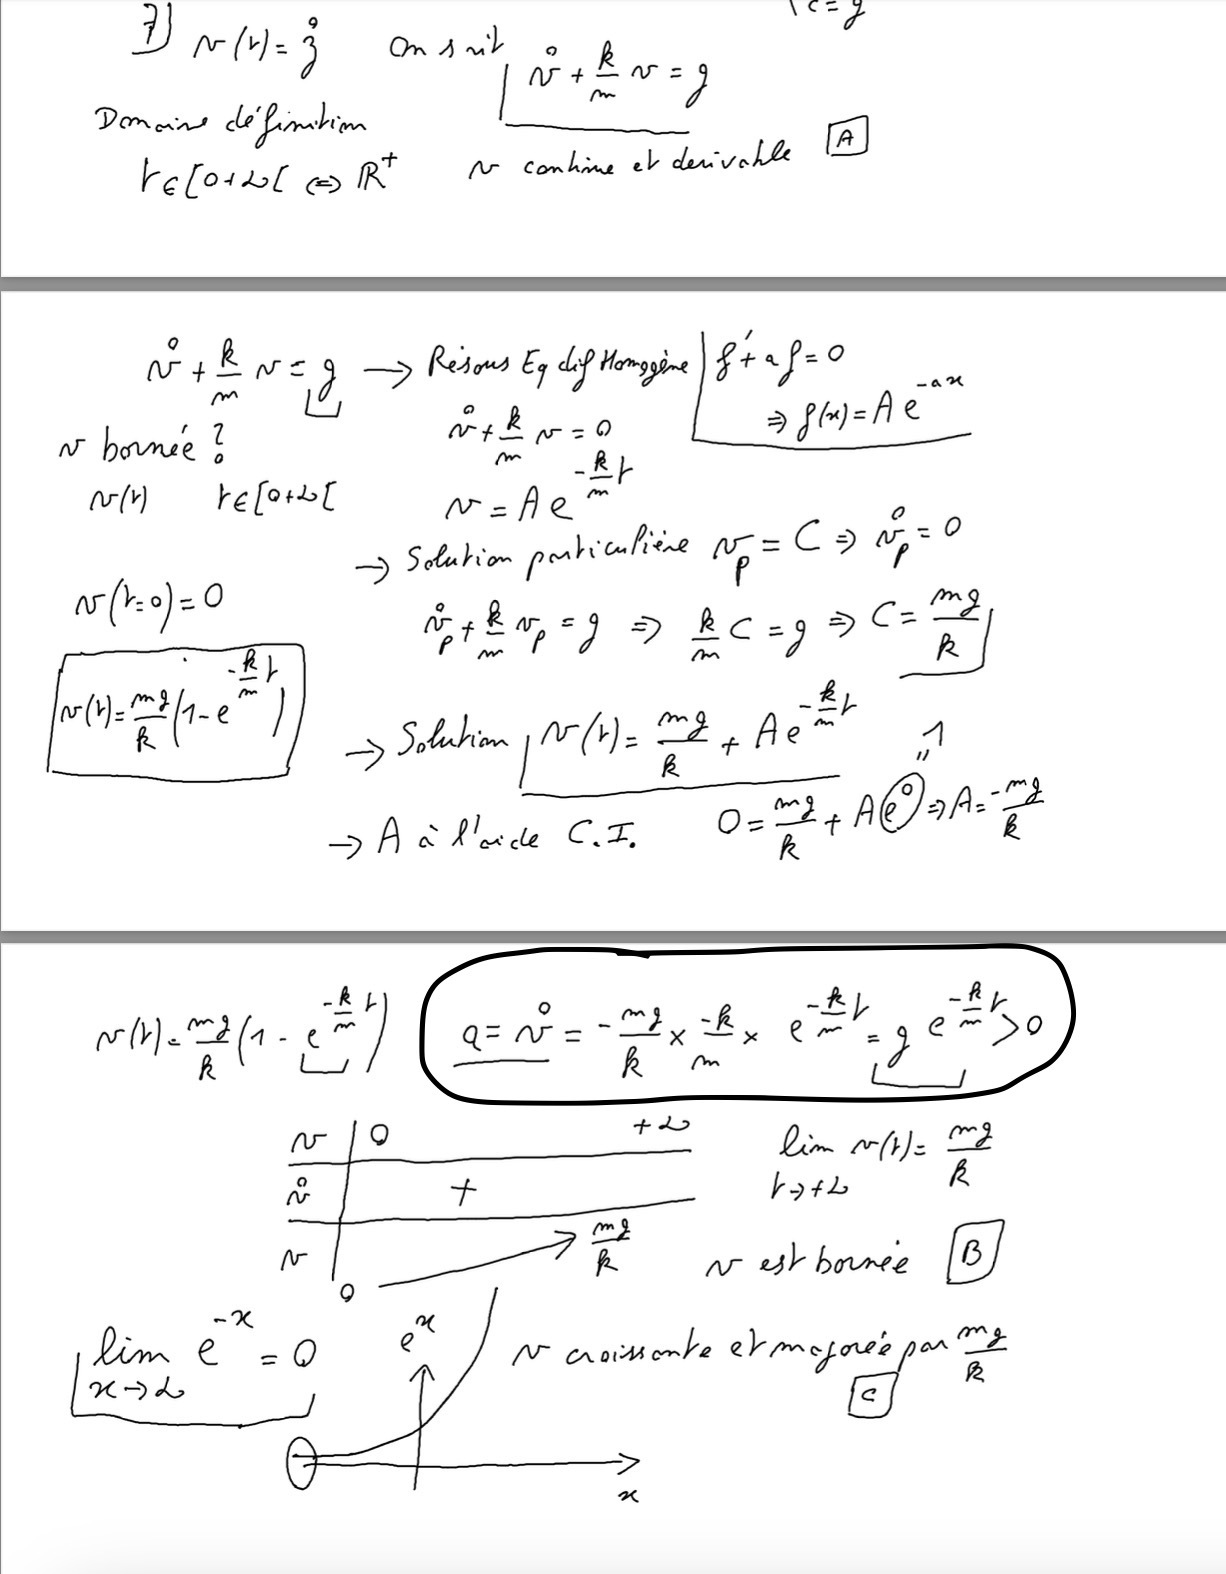 c = g
7) v(t) = ż On sait v̊ + k/m v = g
Domaine définition
t ∈ [0 +∞[ ⇔ ℝ⁺ v continue et derivable [A]
v̊ + k/m v = g → Résous Eq dif Homogène | f' + a f = 0
⇒ f(x) = A e^(-ax)
v bornée ? v̊ + k/m v = 0
v(t) t ∈ [0 +∞[ v = A e^(-k/m t)
→ Solution particulière v_p = C ⇒ v̊_p = 0
v(t=0) = 0 v̊_p + k/m v_p = g ⇒ k/m C = g ⇒ C = mg/k
v(t) = mg/k (1 - e^(-k/m t))
→ Solution v(t) = mg/k + A e^(-k/m t)
→ A à l'aide C.I. 0 = mg/k + A e^0 ⇒ A = -mg/k
" 1
v(t) = mg/k (1 - e^(-k/m t)) a = v̊ = - mg/k × -k/m × e^(-k/m t) = g e^(-k/m t) > 0
v | 0 +∞
v̊ | +
v | 0 → mg/k
lim v(t) = mg/k
t → +∞
v est bornée [B]
lim e^(-x) = 0
x → ∞
e^x
v croissante et majorée par mg/k
[C]
x